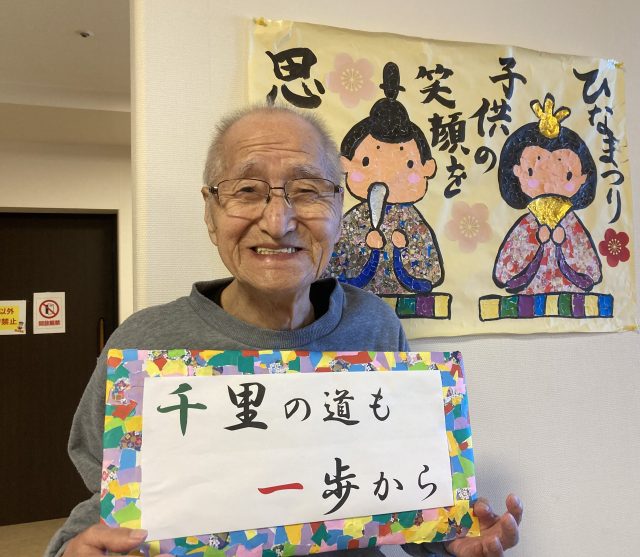 ひなまつり
子供の
笑顔を
思
千里の道も
一歩から
以外
禁止
開放厳禁